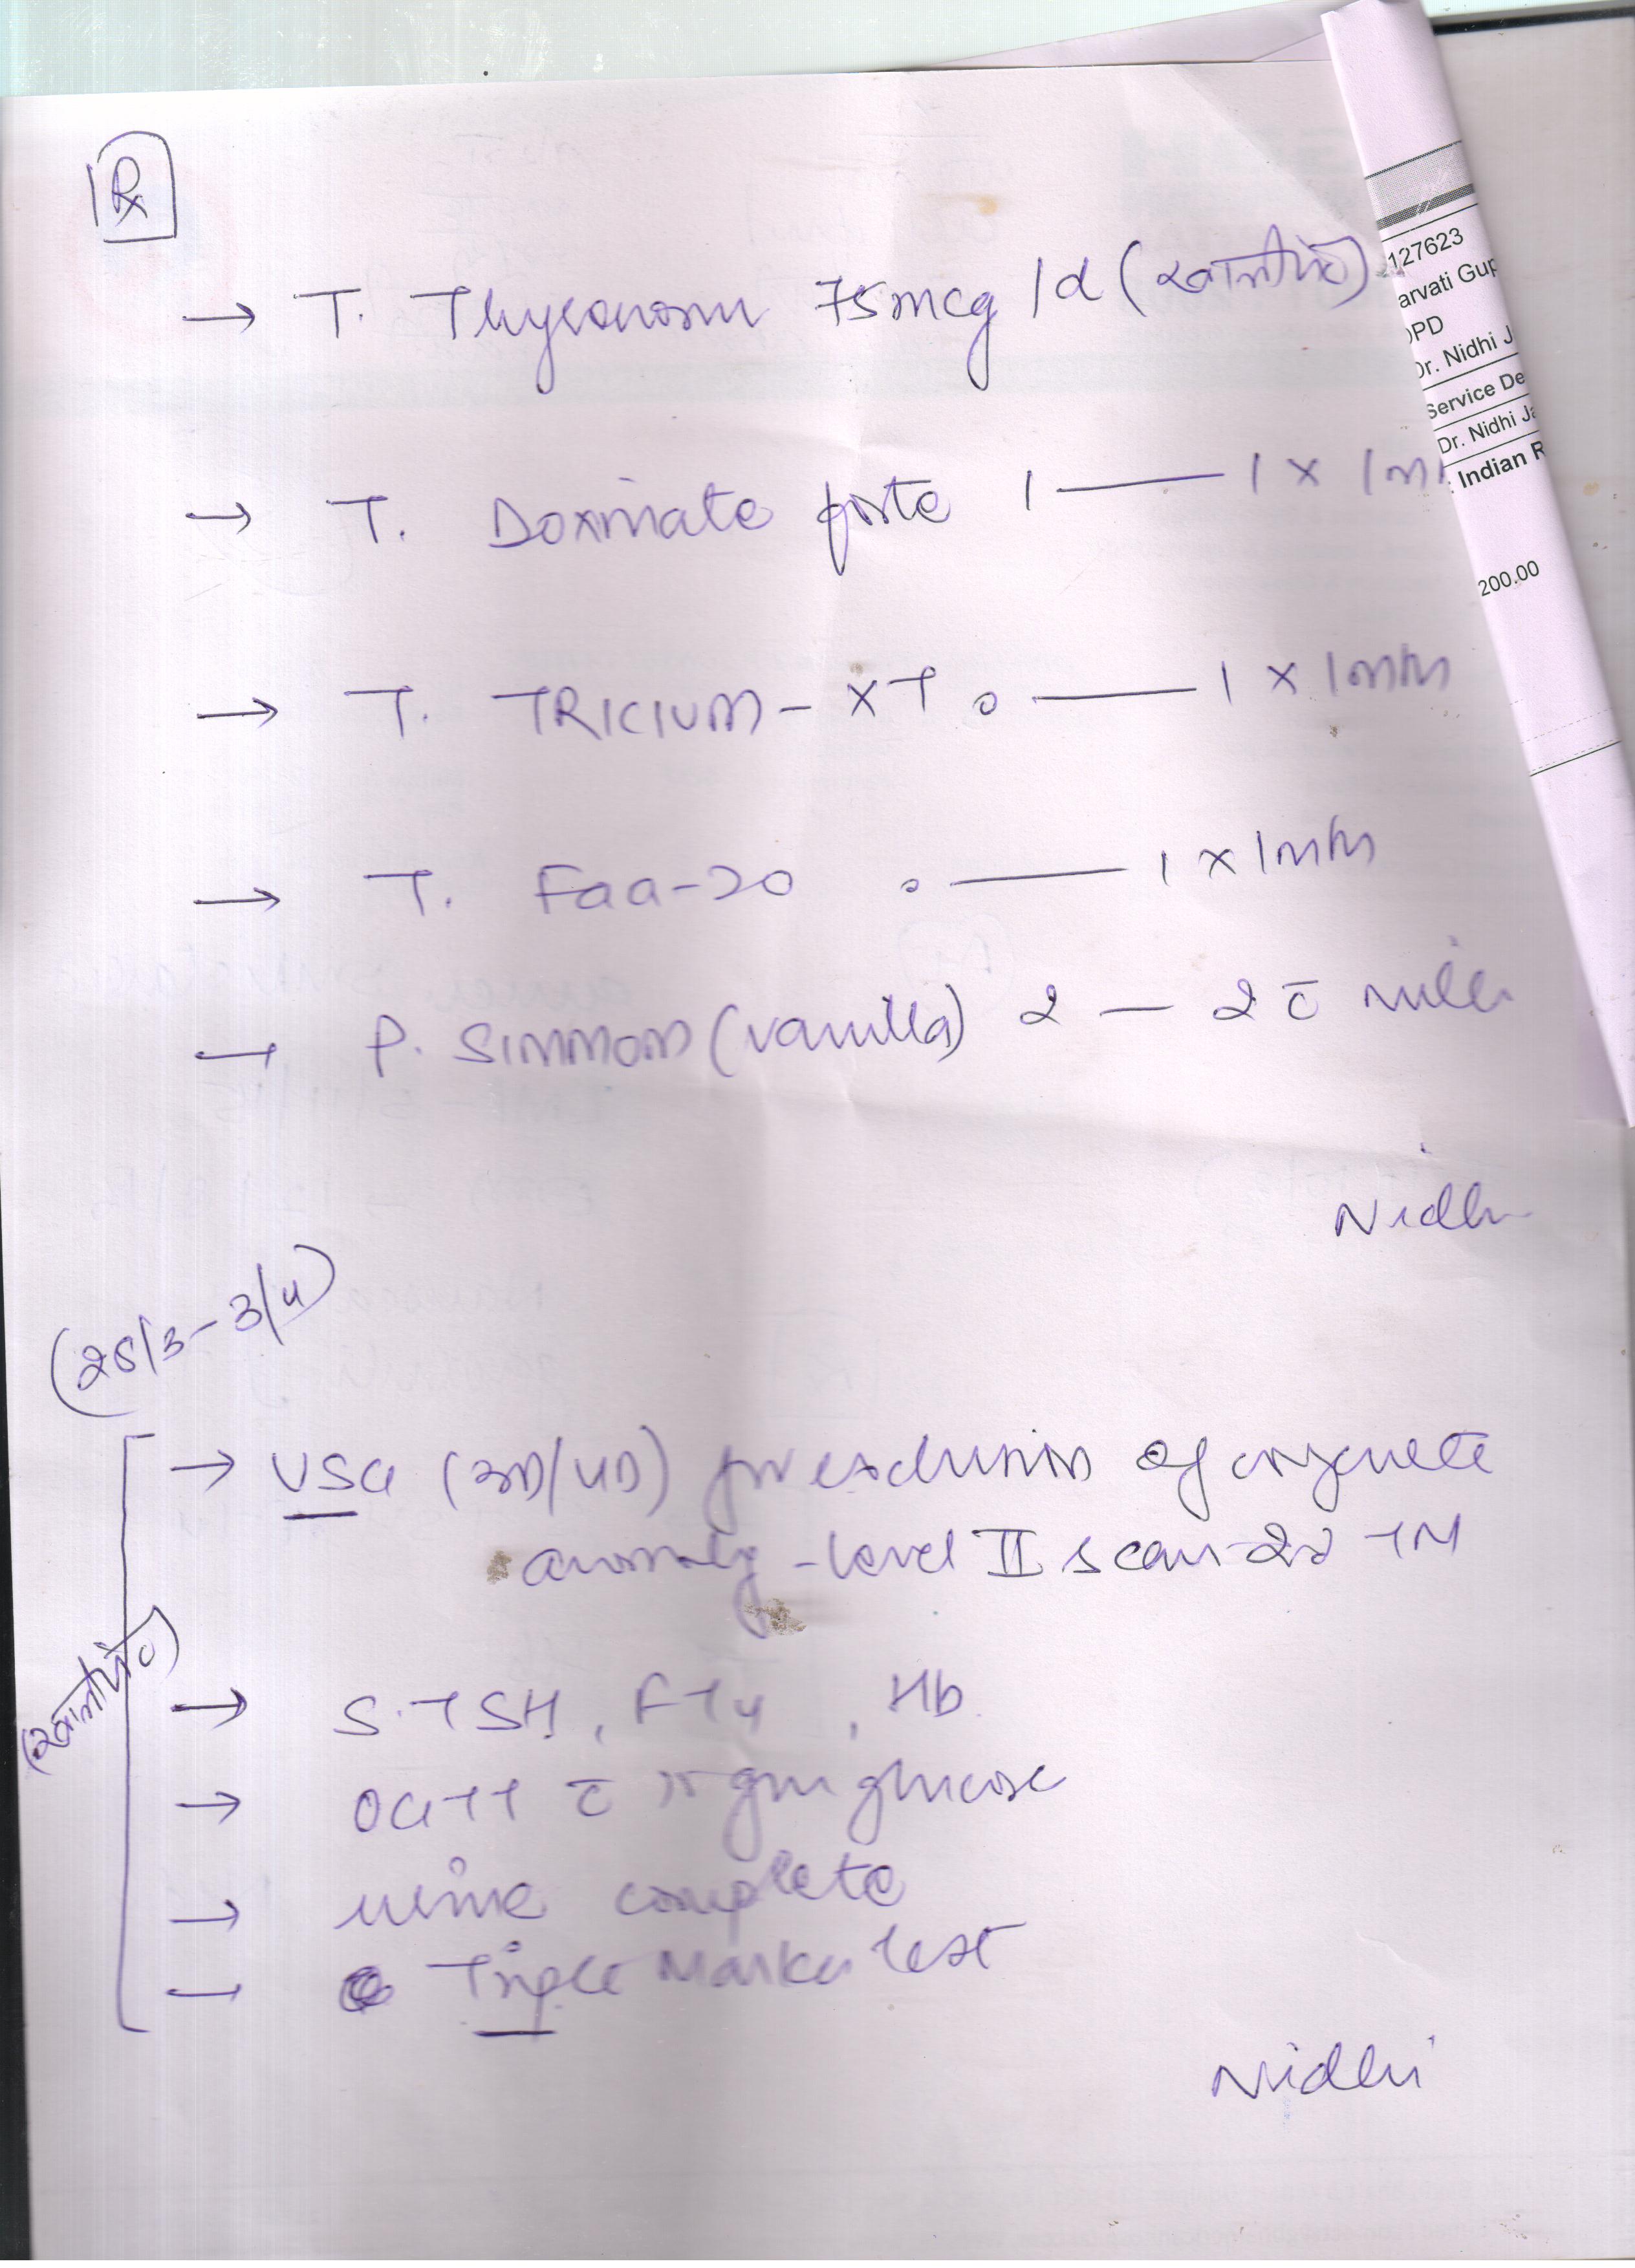 Rx
→ T. Thyronorm 75mcg /d (खाली पेट)
→ T. Doxinate forte 1 —— 1 x 1m
→ T. TRICIUM - XT 0 —— 1 x 1mth
→ T. Faa-20 0 —— 1 x 1mth
→ P. SIMMOM (vanilla) 2 — 2 c̄ milk
Nidhi
(25/3 - 3/4)
→ USG (3D/4D) for exclusion of congenite
anomaly - level II scan
→ S. TSH, FT4, Hb
→ OGTT c̄ 75 gm glucose
→ urine complete
→ Triple Marker test
(खाली पेट)
Nidhi
127623
arvati Gup
OPD
Dr. Nidhi J
Service De
Dr. Nidhi Ja
: Indian R
200.00